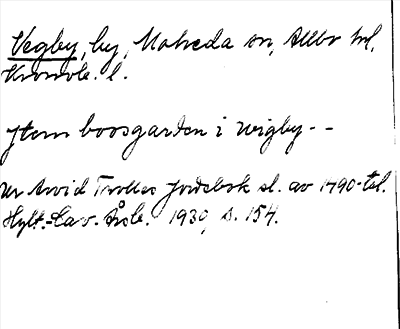 Vegby, by, Moheda sn, Allbo hd,
Kronob. l.
Jtem boosgarden i wigby - -
Ur Arvid Trolles Jordebok sl. av 1490-tal.
Hylt.-Cav. Årsb. 1930, s. 154.